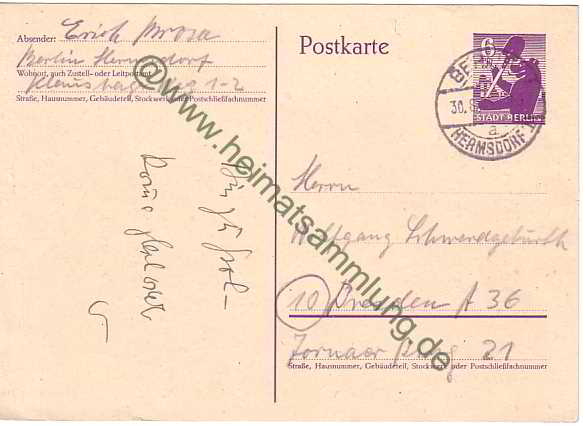 Absender: Erich Brosa
Berlin Hermsdorf
Wohnort, auch Zustell- oder Leitpostamt
1-2
Straße, Hausnummer, Gebäudeteil, Stockwerk oder Postschließfachnummer
Postkarte
6
STADT BERLIN
BERLIN
30.8.
a
HERMSDORF
Herrn
Wolfgang Schwerdgeburth
10 Dresden A 36
Zornaer 21
Straße, Hausnummer, Gebäudeteil, Stockwerk oder Postschließfachnummer
©www.heimatsammlung.de